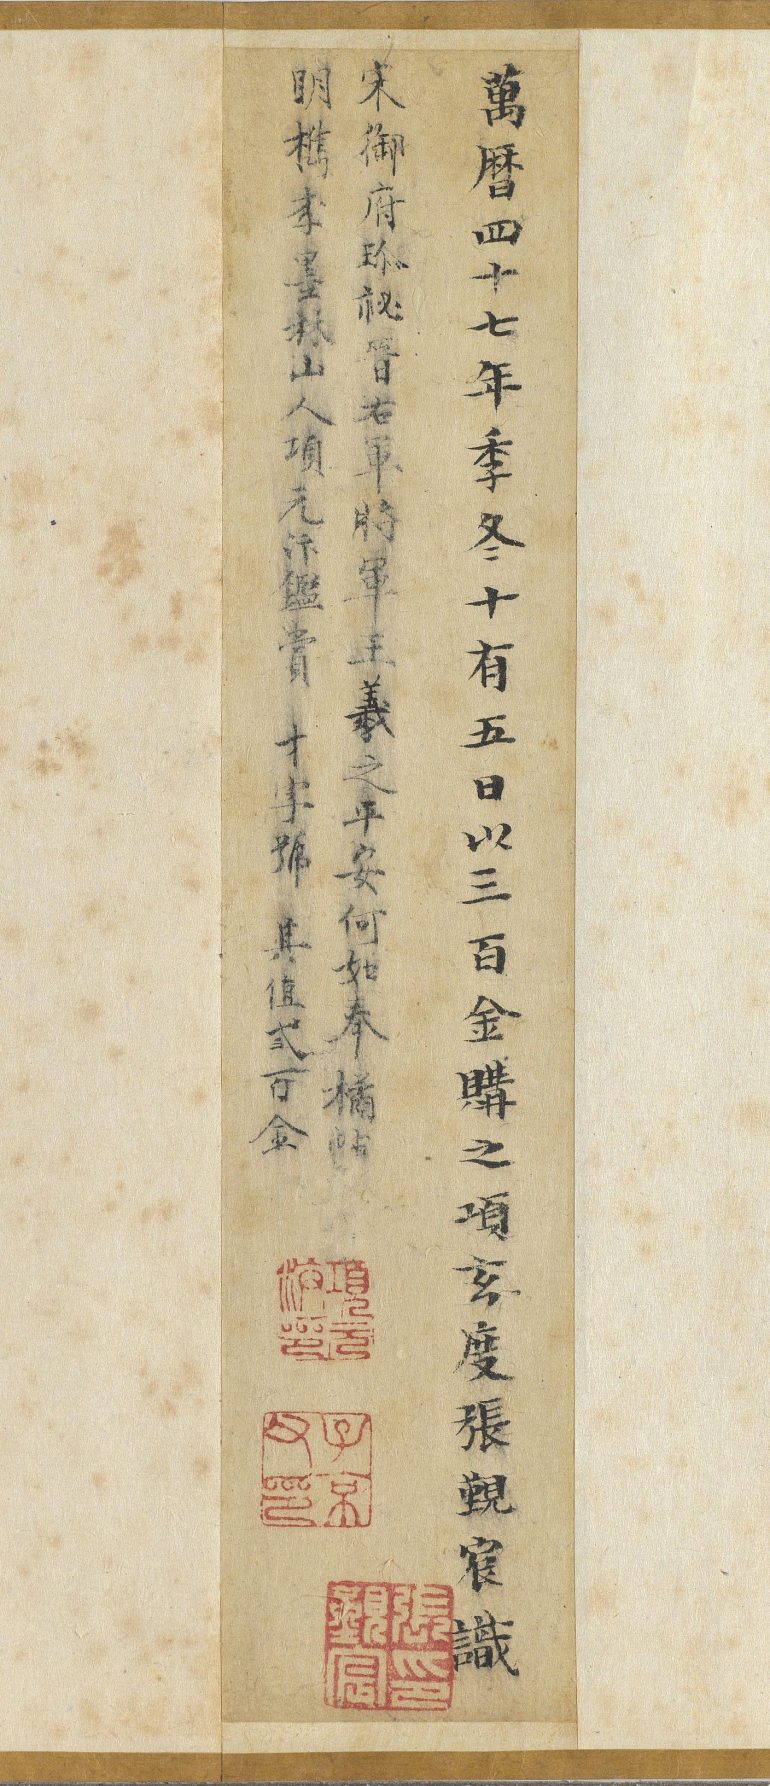 萬曆四十七年季冬十有五日以三百金購之項玄度張覲宸識
宋御府珍祕晉右軍將軍王羲之平安何如奉橘帖
明檇李墨林山人項元汴鑑賞 才字號 其值貳百金
項元汴印
子京父印
張覲宸印